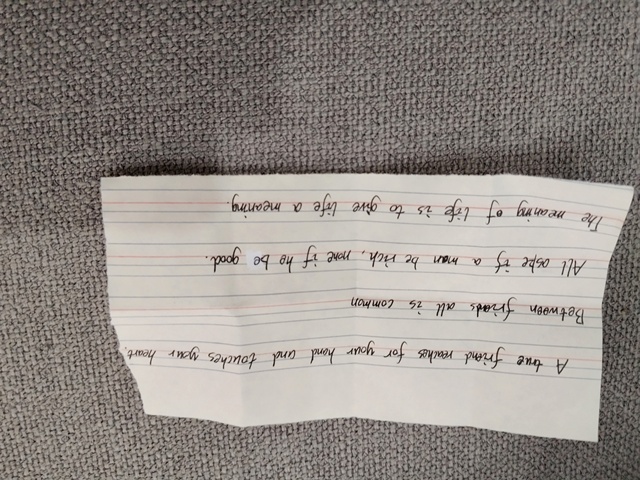 A true friend reaches for your hand and touches your heart.
Between friends all is common
All aske if a man be rich, none if he be good.
The meaning of life is to give life a meaning.